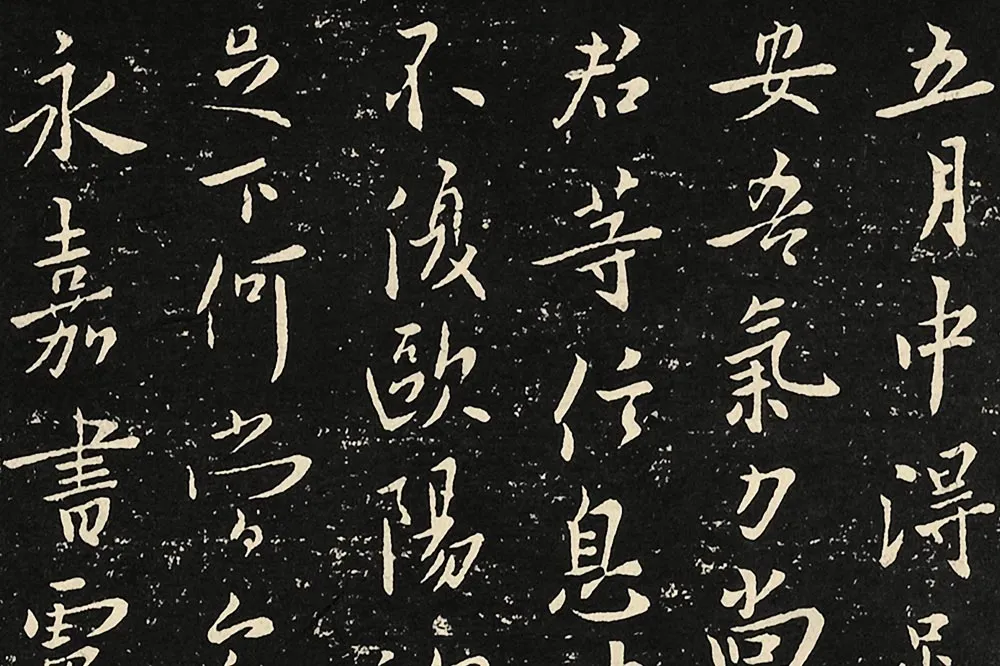 五月中得足
安吾氣力尚
君等信息
不復歐陽
足下何尚
永嘉書